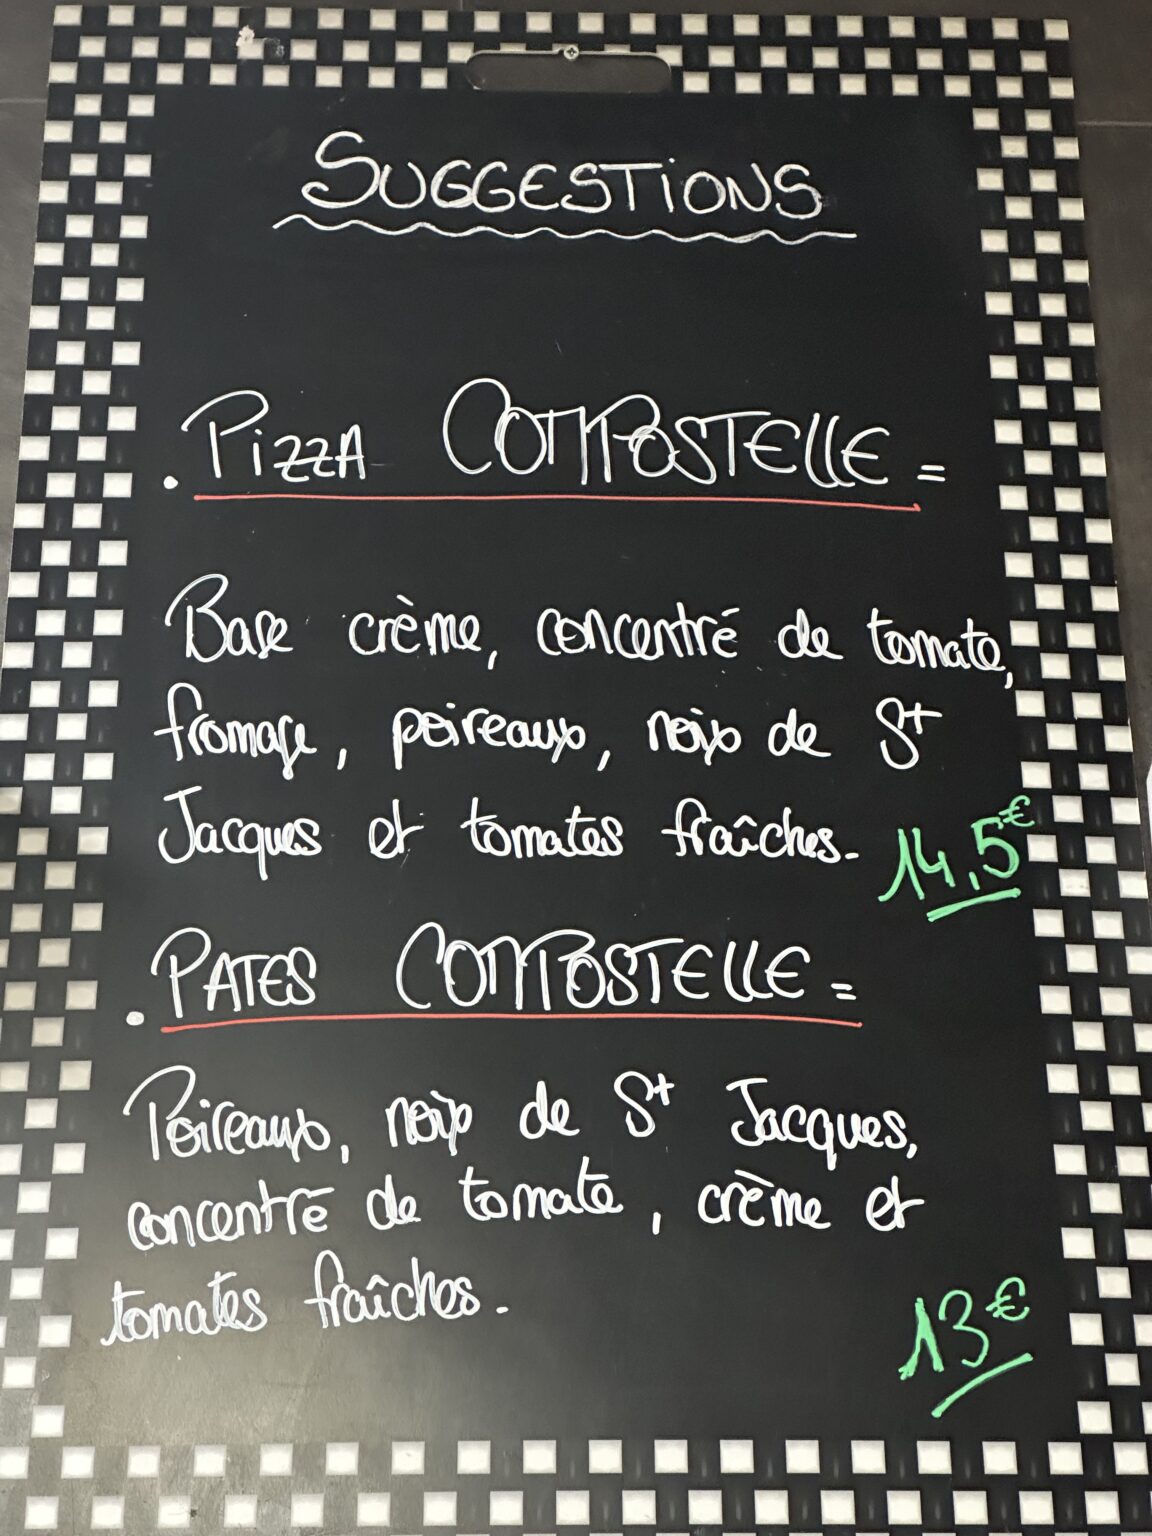 SUGGESTIONS
. PiZZA COMPOSTELLE =
Base crème, concentré de tomate,
fromage, poireaux, noix de St
Jacques et tomates fraîches.
14,5€
. PATES COMPOSTELLE =
Poireaux, noix de St Jacques,
concentré de tomate, crème et
tomates fraîches.
13€